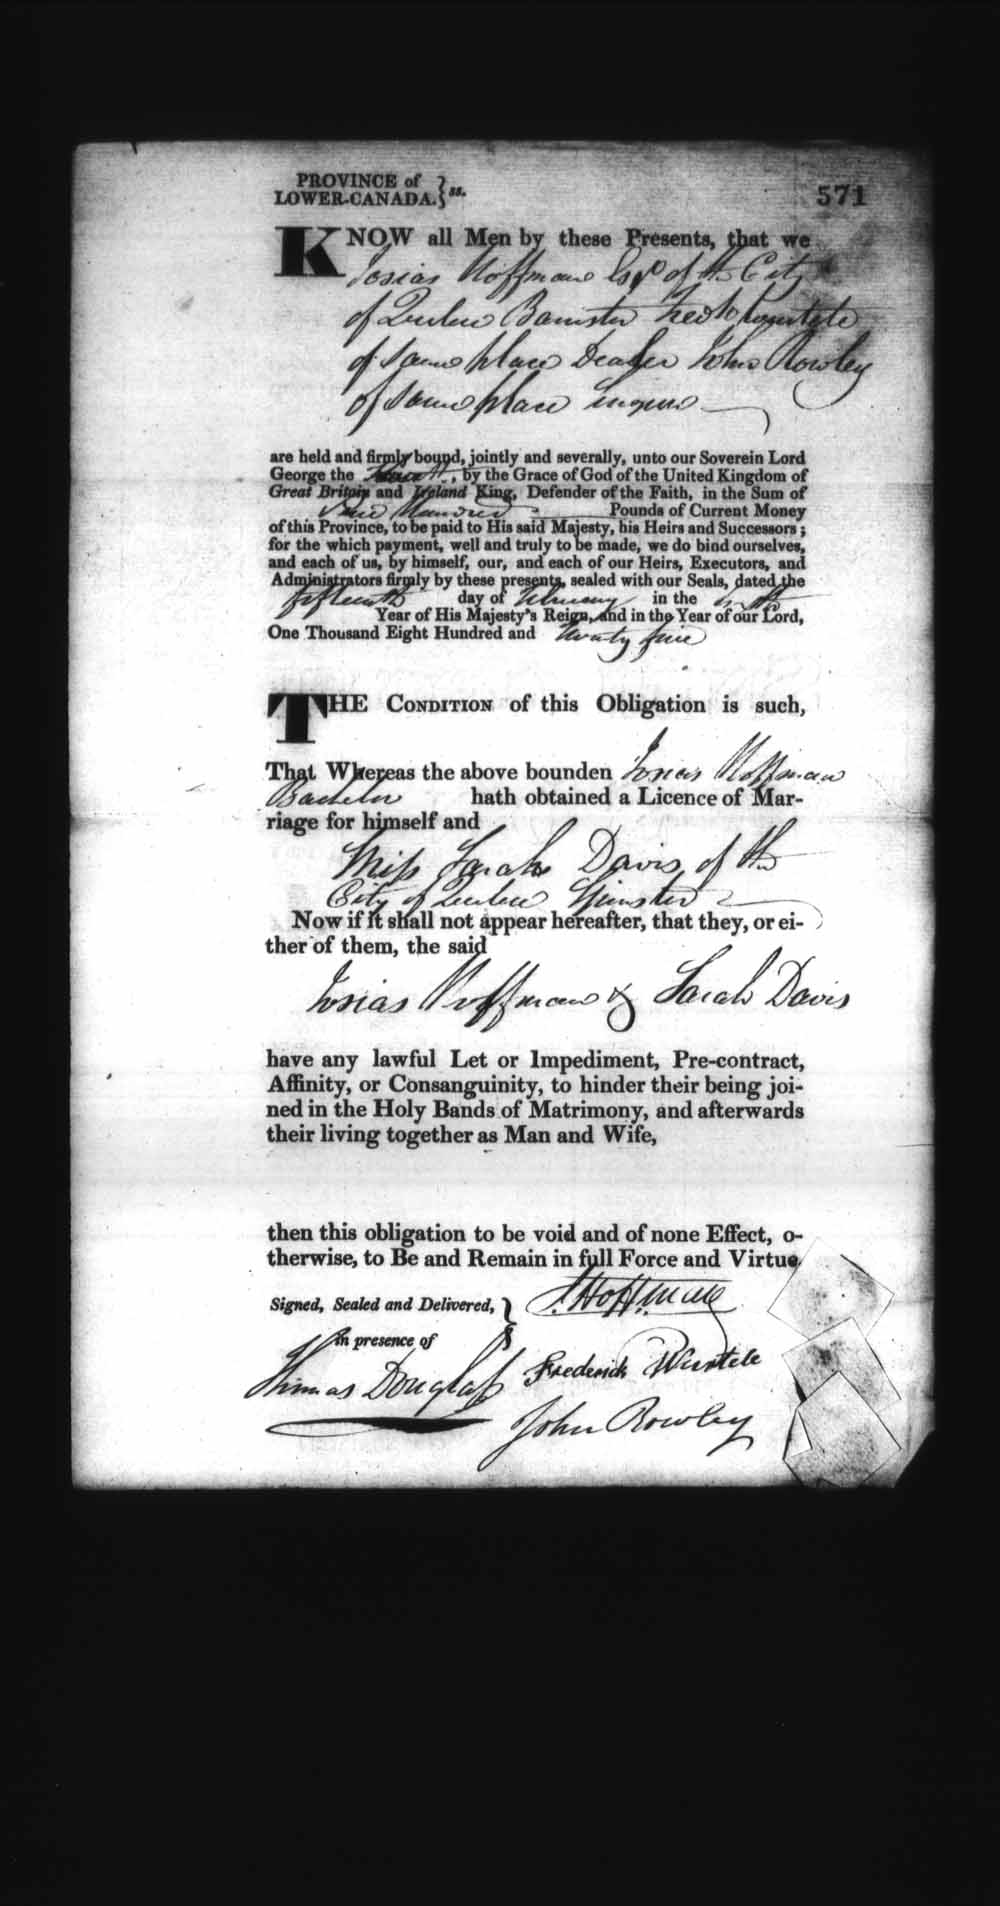 PROVINCE of
LOWER-CANADA. } ss.
571
KNOW all Men by these Presents, that we
Josias Hoffman Esqr of the City
of Quebec Barrister Fredk Wurtele
of same place Dealer John Rowley
of same place
are held and firmly bound, jointly and severally, unto our Soverein Lord
George the Fourth, by the Grace of God of the United Kingdom of
Great Britain and Ireland King, Defender of the Faith, in the Sum of
Hundred Pounds of Current Money
of this Province, to be paid to His said Majesty, his Heirs and Successors;
for the which payment, well and truly to be made, we do bind ourselves,
and each of us, by himself, our, and each of our Heirs, Executors, and
Administrators firmly by these presents, sealed with our Seals, dated the
fifteenth day of February in the sixth
Year of His Majesty's Reign, and in the Year of our Lord,
One Thousand Eight Hundred and twenty five
THE CONDITION of this Obligation is such,
That Whereas the above bounden Josias Hoffman
Bachelor hath obtained a Licence of Mar-
riage for himself and
Miss Sarah Davis of the
City of Quebec Spinster
Now if it shall not appear hereafter, that they, or ei-
ther of them, the said
Josias Hoffman & Sarah Davis
have any lawful Let or Impediment, Pre-contract,
Affinity, or Consanguinity, to hinder their being joi-
ned in the Holy Bands of Matrimony, and afterwards
their living together as Man and Wife,
then this obligation to be void and of none Effect, o-
therwise, to Be and Remain in full Force and Virtue
Signed, Sealed and Delivered, } J. Hoffman
in presence of
Thomas Douglass Frederick Wurtele
John Rowley